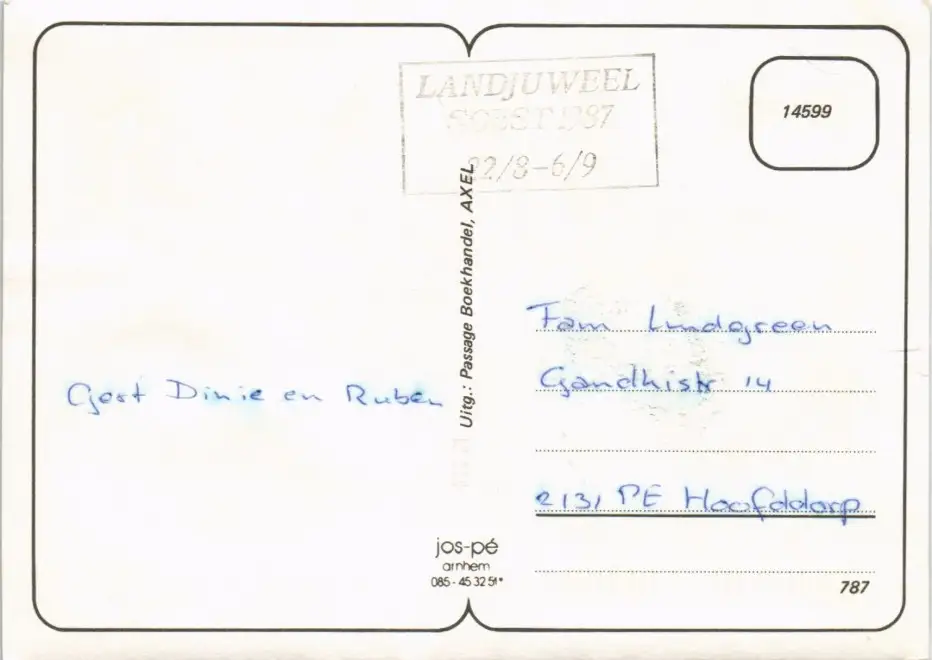 LANDJUWEEL
SOEST 1987
22/8-6/9
14599
Uitg.: Passage Boekhandel, AXEL
Gert Dinie en Ruben
Fam Lindgreen
Gandhistr 14
2131 PE Hoofddorp
jos-pé
arnhem
085-45 32 51*
787